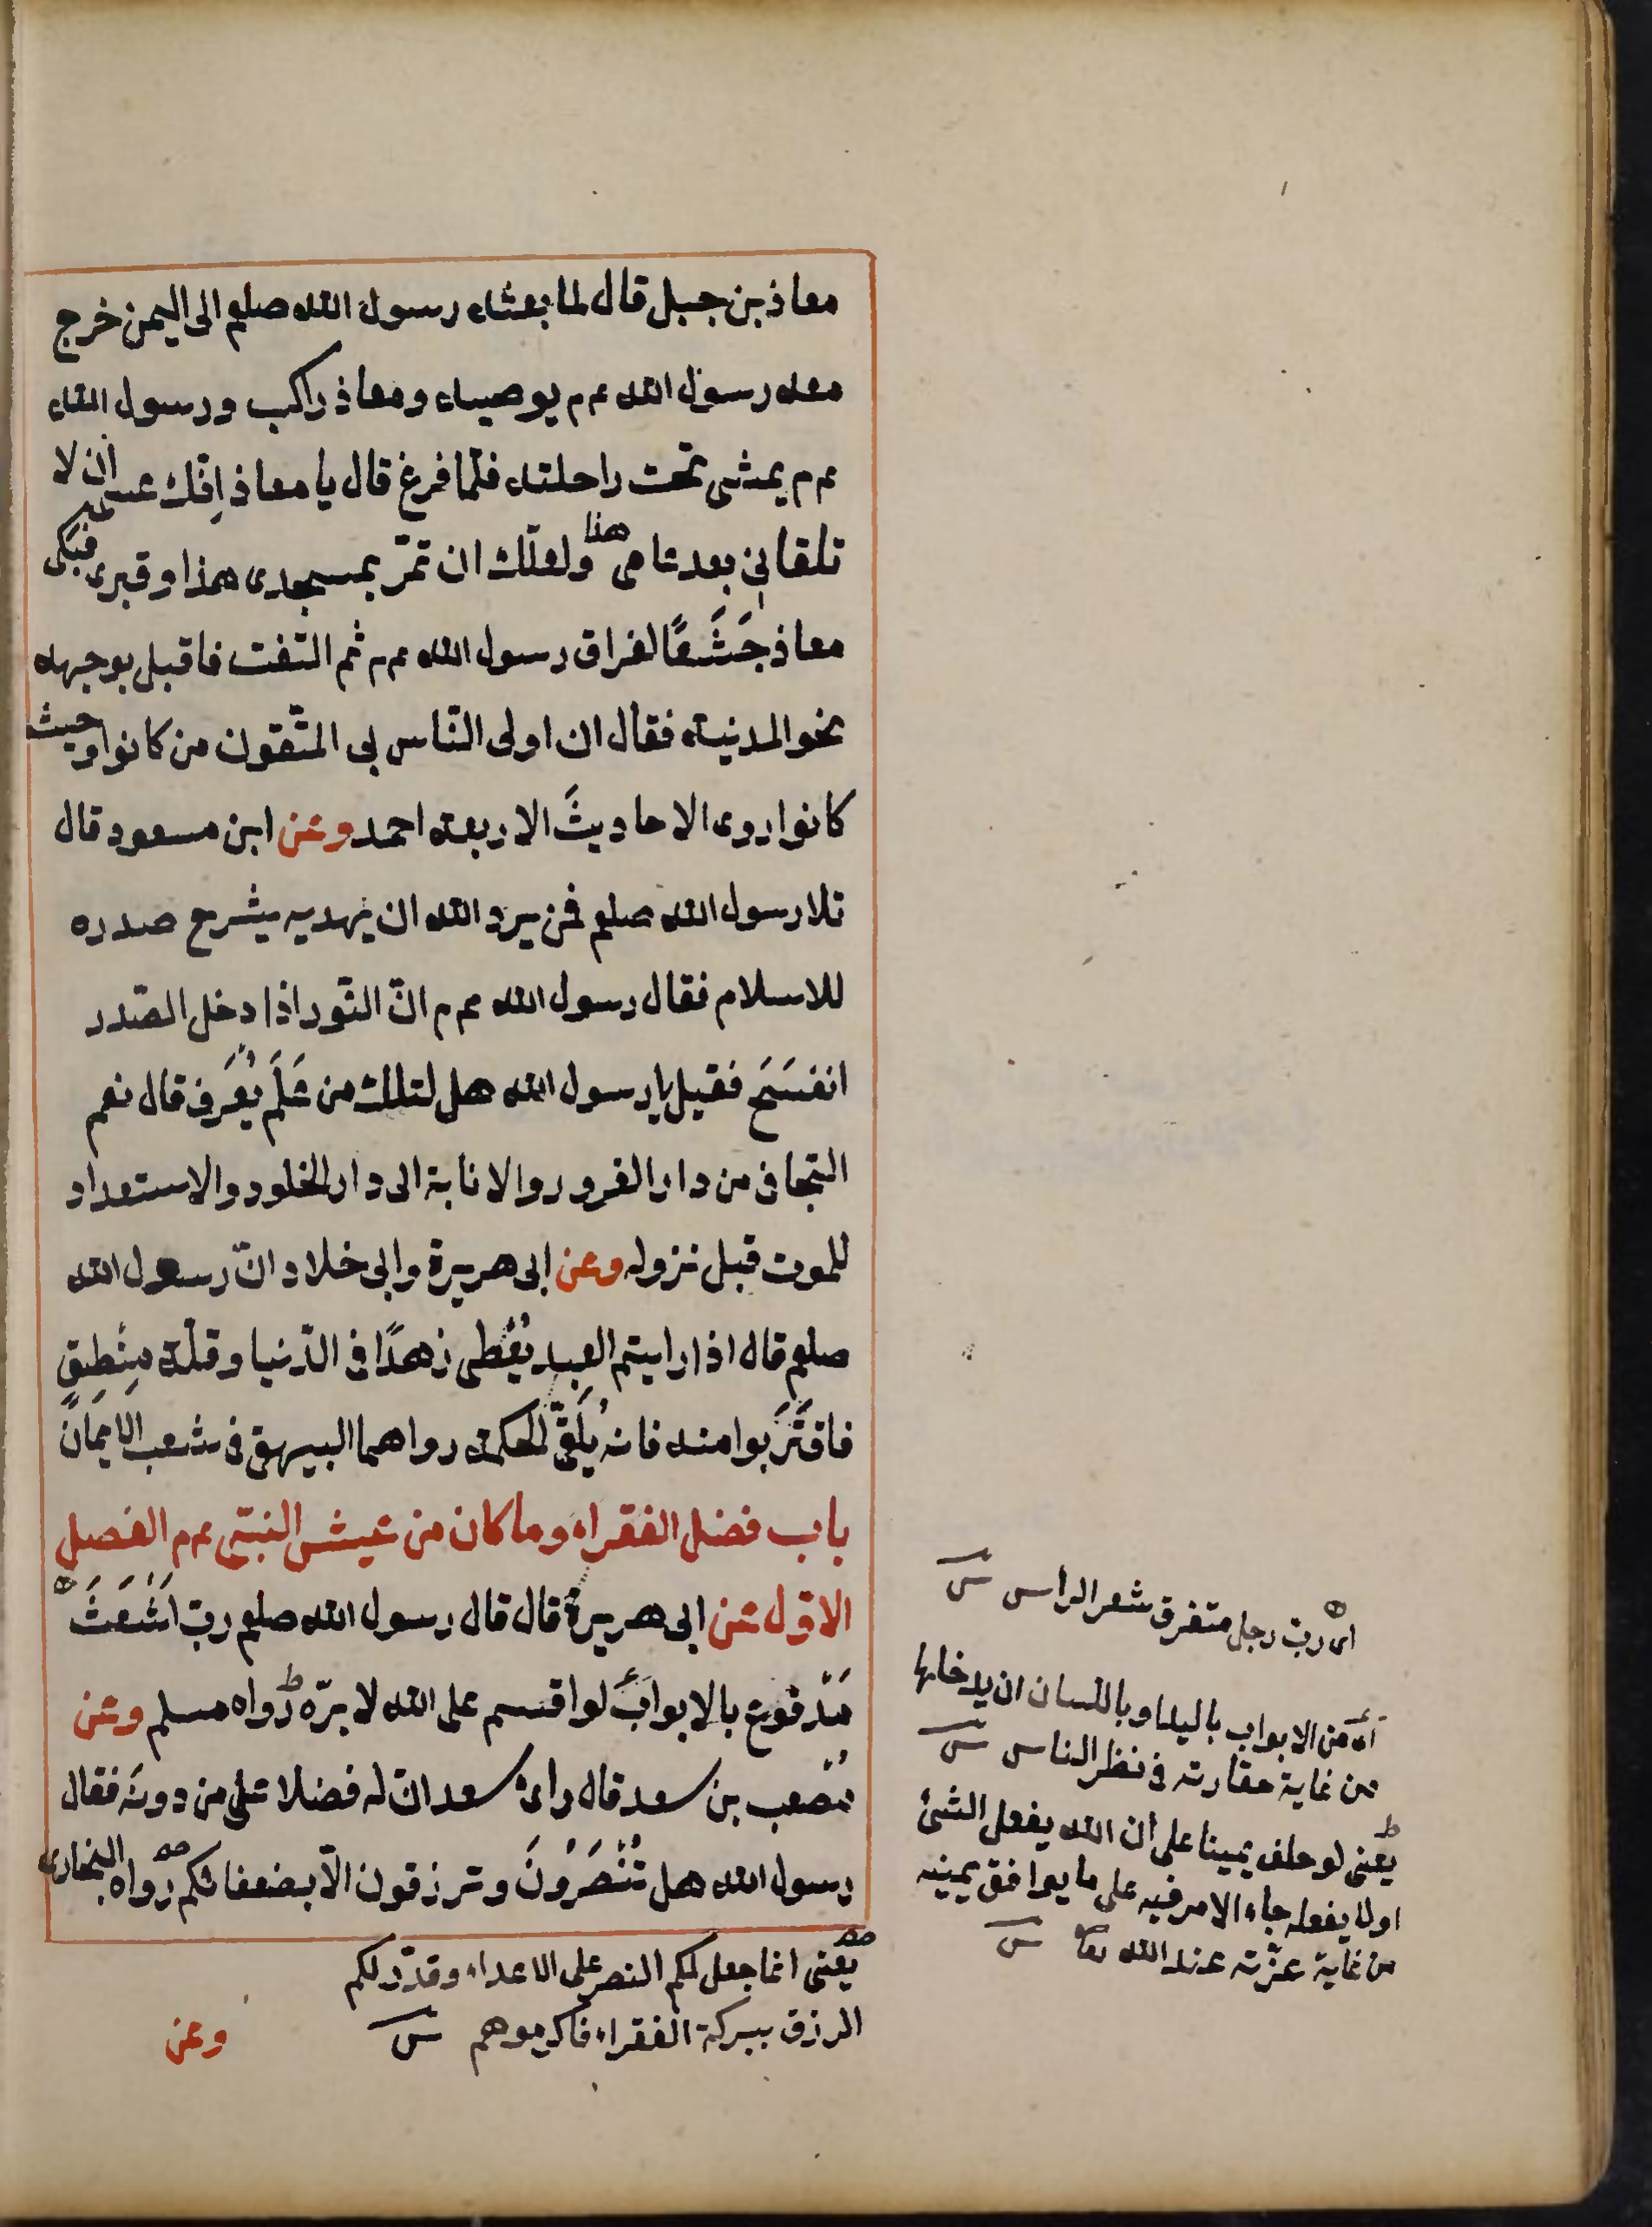 معاذ بن جبل قال لما بعثه رسول الله صلعم الى اليمن خرج
معه رسول الله عم م يوصيه ومعاذ راكب ورسول الله
عم م يمشى تحت راحلته فلما فرغ قال يا معاذ اِنّك عسى ان لا
تلقانى بعد عامى هذا ولعلّك ان تمرّ بمسجدى هذا وقبرى فبكى
معاذ جَشَعًا لفراق رسول الله عم م ثم التفت فاقبل بوجهه
نحو المدنية فقال ان اولى النّاس بى المتّقون من كانوا وحيث
كانوا روى الاحاديثَ الاربعة احمد وعن ابن مسعود قال
تلا رسول الله صلعم فمن يرد الله ان يهديه يشرح صدره
للاسلام فقال رسول الله عم م انّ النّور اذا دخل الصّدر
انفسَحَ فقيل يا رسول الله هل لتلك من عَلَمٍ يُعرَف قال نعم
التجافى من دار الغرور والانابة الى دار الخلود والاستعداد
للموت قبل نزوله وعن ابى هريرة وابى خلاد انّ رسول الله
صلعم قال اذا رايتم العبد يُعْطى زهدًا فى الدّنيا وقلّة مِنْطِقٍ
فاقتَرَبوا منه فانه يُلَقّى الحكمة رواهما البيهقى فى شعب الايمَان
باب فضل الفقراء وما كان من عيش النبىّ عم م الفصل
الاوّل عن ابى هريرة قال قال رسول الله صلعم ربّ اَشْعَثَ
مَدْفوع بالابوابَ لو اقسم على الله لابرّه رواه مسلم وعن
مُصْعب بن سعد قال رأى سعد انّ له فضلا على من دونَه فقال
رسول الله هل تُنْصَرُونَ وترزقون الّا بضعفائكم رواه البخارى
يعنى انما جعل لكم النصر على الاعداء وقدّر لكم
الرزق ببركة الفقراء فاكرموهم س
وعن
اى ربّ رجل متفرق شعر الراس س
اى من الابواب باليد او باللسان ان يدخلها
من غاية حقارته فى نظر الناس س
يعنى لو حلف يمينا على ان الله يفعل الشئ
او لا يفعله جاء الامر فيه على ما يوافق يمينه
من غاية عزّته عند الله تعا س